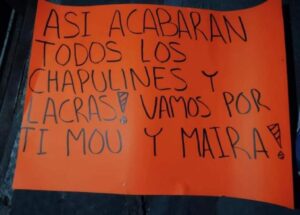 ASI ACABARAN
TODOS LOS
CHAPULINES Y
LACRAS! VAMOS POR
TI MOU Y MAIRA!